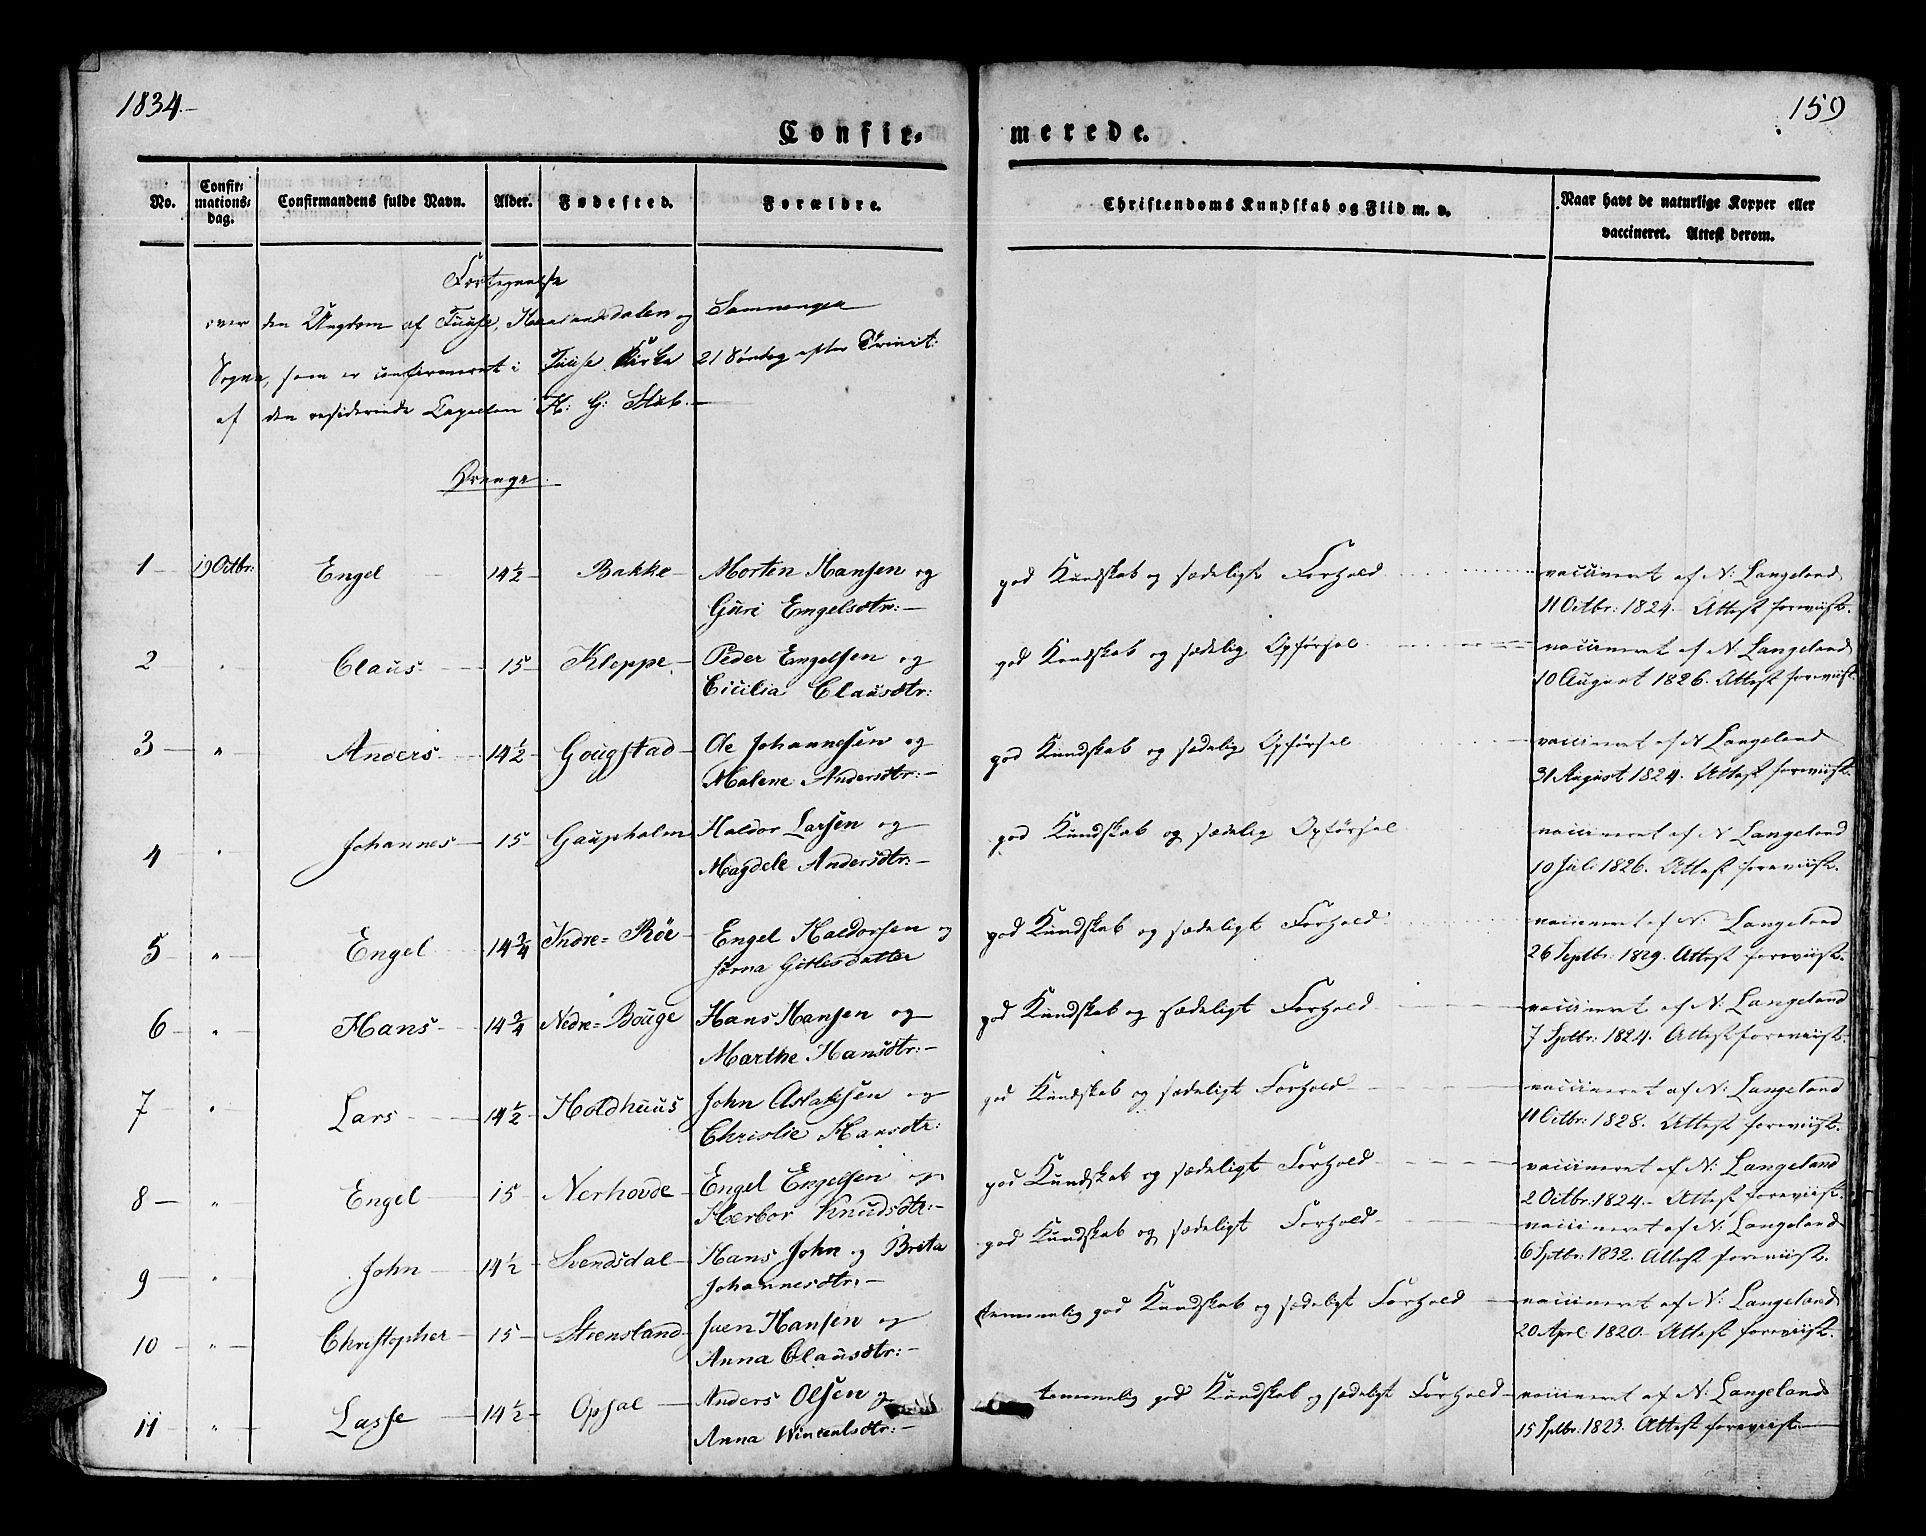 1834.-
159
Confir-
merede.
No.
Confir-
mations-
dag.
Confirmandens fulde Navn.
Alder.
Fødested.
Forældre.
Christendoms Kundskab og Flid m. v.
Naar havt de naturlige Kopper eller
vaccineret. Attest derom.
Fortegnelse
over den Ungdom af Fuuse, Haalandsdalen og Samnanger
Sogne, som er confirmeret i Fuuse Kirke 21 Søndag efter Trinit:
af den residerende Capellan H: G: Stub.-
Drenge.
1 - 19 Octbr: Engel - 14½ - Bakke - Morten Hansen og god Kundskab og sædeligt Forhold vaccineret af N: Langeland
Guri Engelsdtr:- 11 Octbr: 1824.- Attest foreviist.
2 " Claus - 15 - Kleppe - Peder Engelsen og god Kundskab og sædelig Opførsel vaccineret af N Langeland
Cicilia Clausdtr: 10 August 1826. Attest foreviist.
3 - " - Anders - 14½ - Gougstad - Ole Johannesen og god Kundskab og sædelig Opførsel vaccineret af N Langeland
Malene Andersdtr:- 31 August 1824. Attest foreviist.
4 " Johannes - 15 - Gaupholm Haldor Larsen og god Kundskab og sædelig Opførsel vaccineret af N Langeland
Magdele Andersdtr:- 10 Juli 1826. Attest foreviist.
5 - " - Engel 14¾ Indre= Røe - Engel Haldorsen og god Kundskab og sædeligt Forhold vaccineret af N: Langeland
Gitlesdatter 26 Septbr: 1829. Attest foreviist.
6 - " - Hans - 14¾ Nedre= Bouge Hans Hansen og god Kundskab og sædeligt Forhold vaccineret af N: Langeland
Marthe Hansdtr:- 7 Sptbr: 1824. Attest foreviist.
7 - " - Lars - 14½ - Holdhuus John Aslaksen og god Kundskab og sædeligt Forhold vaccineret af N: Langeland
Christie Hansdtr: 11 Octbr: 1828. Attest foreviist.
8 - " - Engel - 15 - Nerhovde - Engel Engelsen og god Kundskab og sædeligt Forhold vaccineret af N: Langeland
Herbor Knudsdtr:- 2 Octbr: 1824.- Attest foreviist.
9 - " - John - 14½ - Svendsdal - Hans John og Brita god Kundskab og sædeligt Forhold - vaccineret af N: Langeland
Johannesdtr:- 6 Sptbr: 1832. Attest foreviist.
10 - " - Christopher - 15 - Strensland - Hansen og temmelig god Kundskab og sædeligt Forhold - vaccineret af N: Langeland
Anna Clausdtr:- 20 Aprl 1820.- Attest foreviist.
11 - " - Lasse - 14½ - Opsal - Anders Olsen og temmelig god Kundskab og sædeligt Forhold - vaccineret af N: Langeland
Anna Wincentsdtr:- 15 Sptbr: 1823. Attest foreviist.-